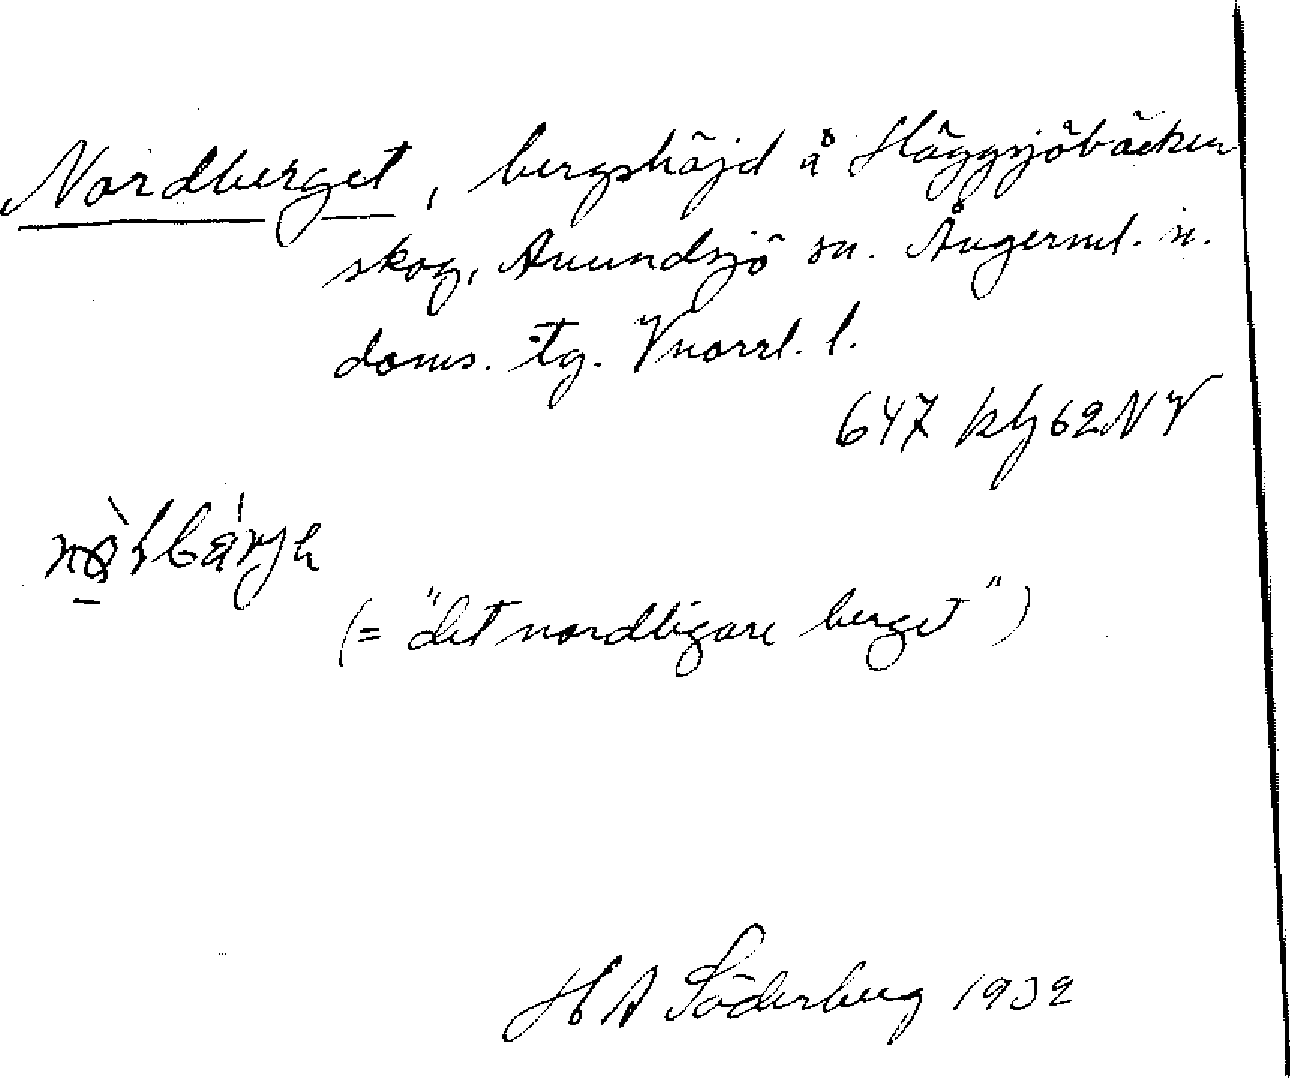 Nordberget, bergshöjd å Häggsjöbäcken
skog, Anundsjö sn. Ångerml. n.
doms. tg. Vnorrl. l.
647 kbl 62 NV
(= "det nordligare berget")
H A Söderberg 1932